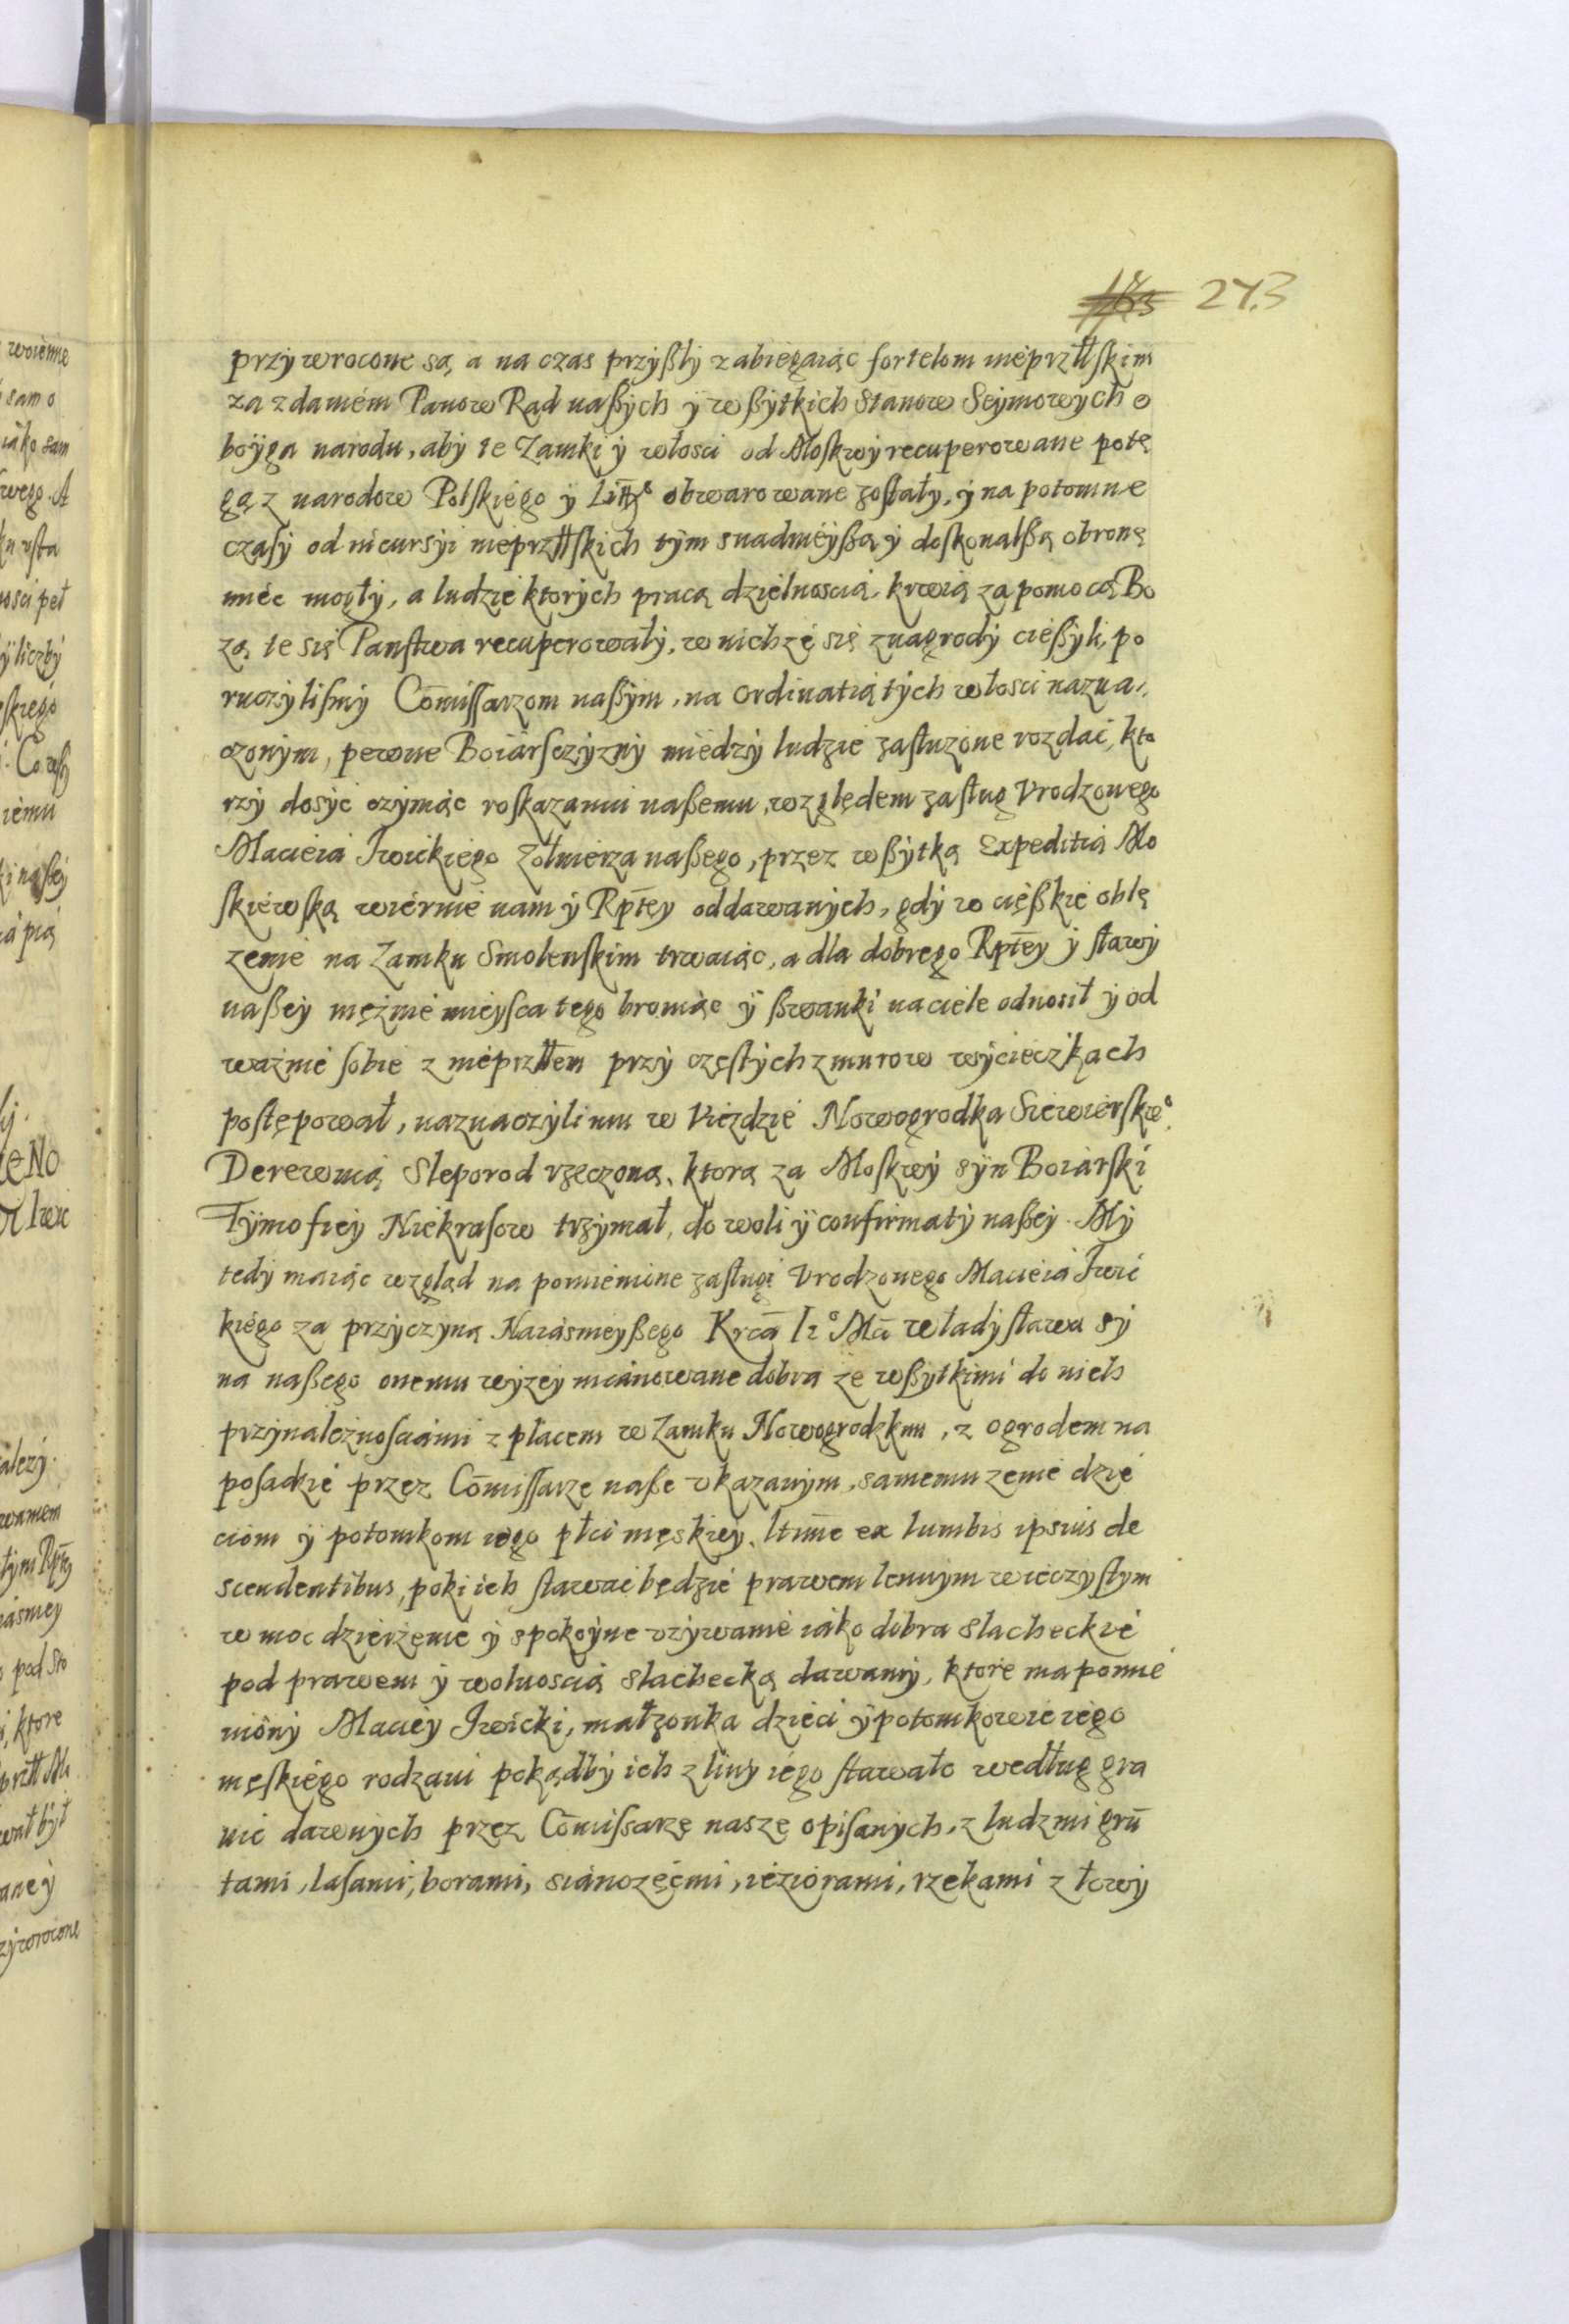 273
przywrocone są, a na czas przyßły zabiegaiąc fortelom nieprzłłskim
za zdaniem Panow Rad naßych y wßytkich Stanow Seymowych o
boyga narodu, aby te Zamki y włosci od Moskwy recuperowane potę
gą z narodow Polskiego y Litt° obwarowane zostały, y na potomne
czasy od incursyi nieprzłłskich tym snadnieyßą y doskonalßą obronę
mieć mogły, a ludzie ktorych pracą dzielnoscią, krwią za pomocą Bo
zą, te się Panstwa recuperowały, w nichze się z nagrody cießyli, po
ruczylismy Com̄issarzom naßym, na ordinatią tych włosci nazna,,
czonym, pewne Boiarsczyzny miedzy ludzie zasłuzone rozdać, kto
rzy dosyć czyniąc roskazaniu naßemu, względem zasług Vrodzonego
Macieia Iwickiego Zołnierza naßego, przez wßytką Expeditią Mo
skiewską wiernie nam y Rptēy oddawanych, gdy w cięßkie oblę
zenie na Zamku Smolenskim trwaiąc, a dla dobrego Rptēy y sławy
naßey mężnie mieysca tego broniąc y ßwanki na ciele odnosił y od
ważnie sobie z nieprzłłem przy częstych z murow wycieczkach
postępował, naznaczyli mu w Vieździe Nowogrodka Siewierskie°
Derewnią Sleporod rzeczoną, ktorą za Moskwy syn Boiarski
Tymofiey Niekrasow trzymał, do woli y confirmaty naßey. My
tedy maiąc wzgląd na pomienione zasługi Vrodzonego Macieia Iwic
kiego za przyczyną Naiasnieyßego Krca̅ I° Mci̅ Władysława sy
na naßego onemu wyzey mianowane dobra ze wßytkimi do nich
przynależnosciami z placem w Zamku Nowogrodzkim, z ogrodem na
posadzie przez Com̄issarze naße vkazanym, samemu zenie dzie
ciom y potomkom iego płci męskiey, ltim̄e ex lumbis ipsius de
scendentibus, poki ich stawać będzie prawem lennym wieczystym
w moc dzierżenie y spokoyne vzywanie iako dobra slacheckie
pod prawem y wolnoscią slachecką dawamy, ktore ma pomie
niony Maciey Iwicki, małżonka dzieci y potomkowie iego
męskiego rodzaiu pokądby ich z liny iego stawało według gra
nic dawnych przez Com̄issarze nasze opisanych, z ludzmi grū
tami, lasami, borami, sianożęćmi, ieziorami, rzekami z łowy